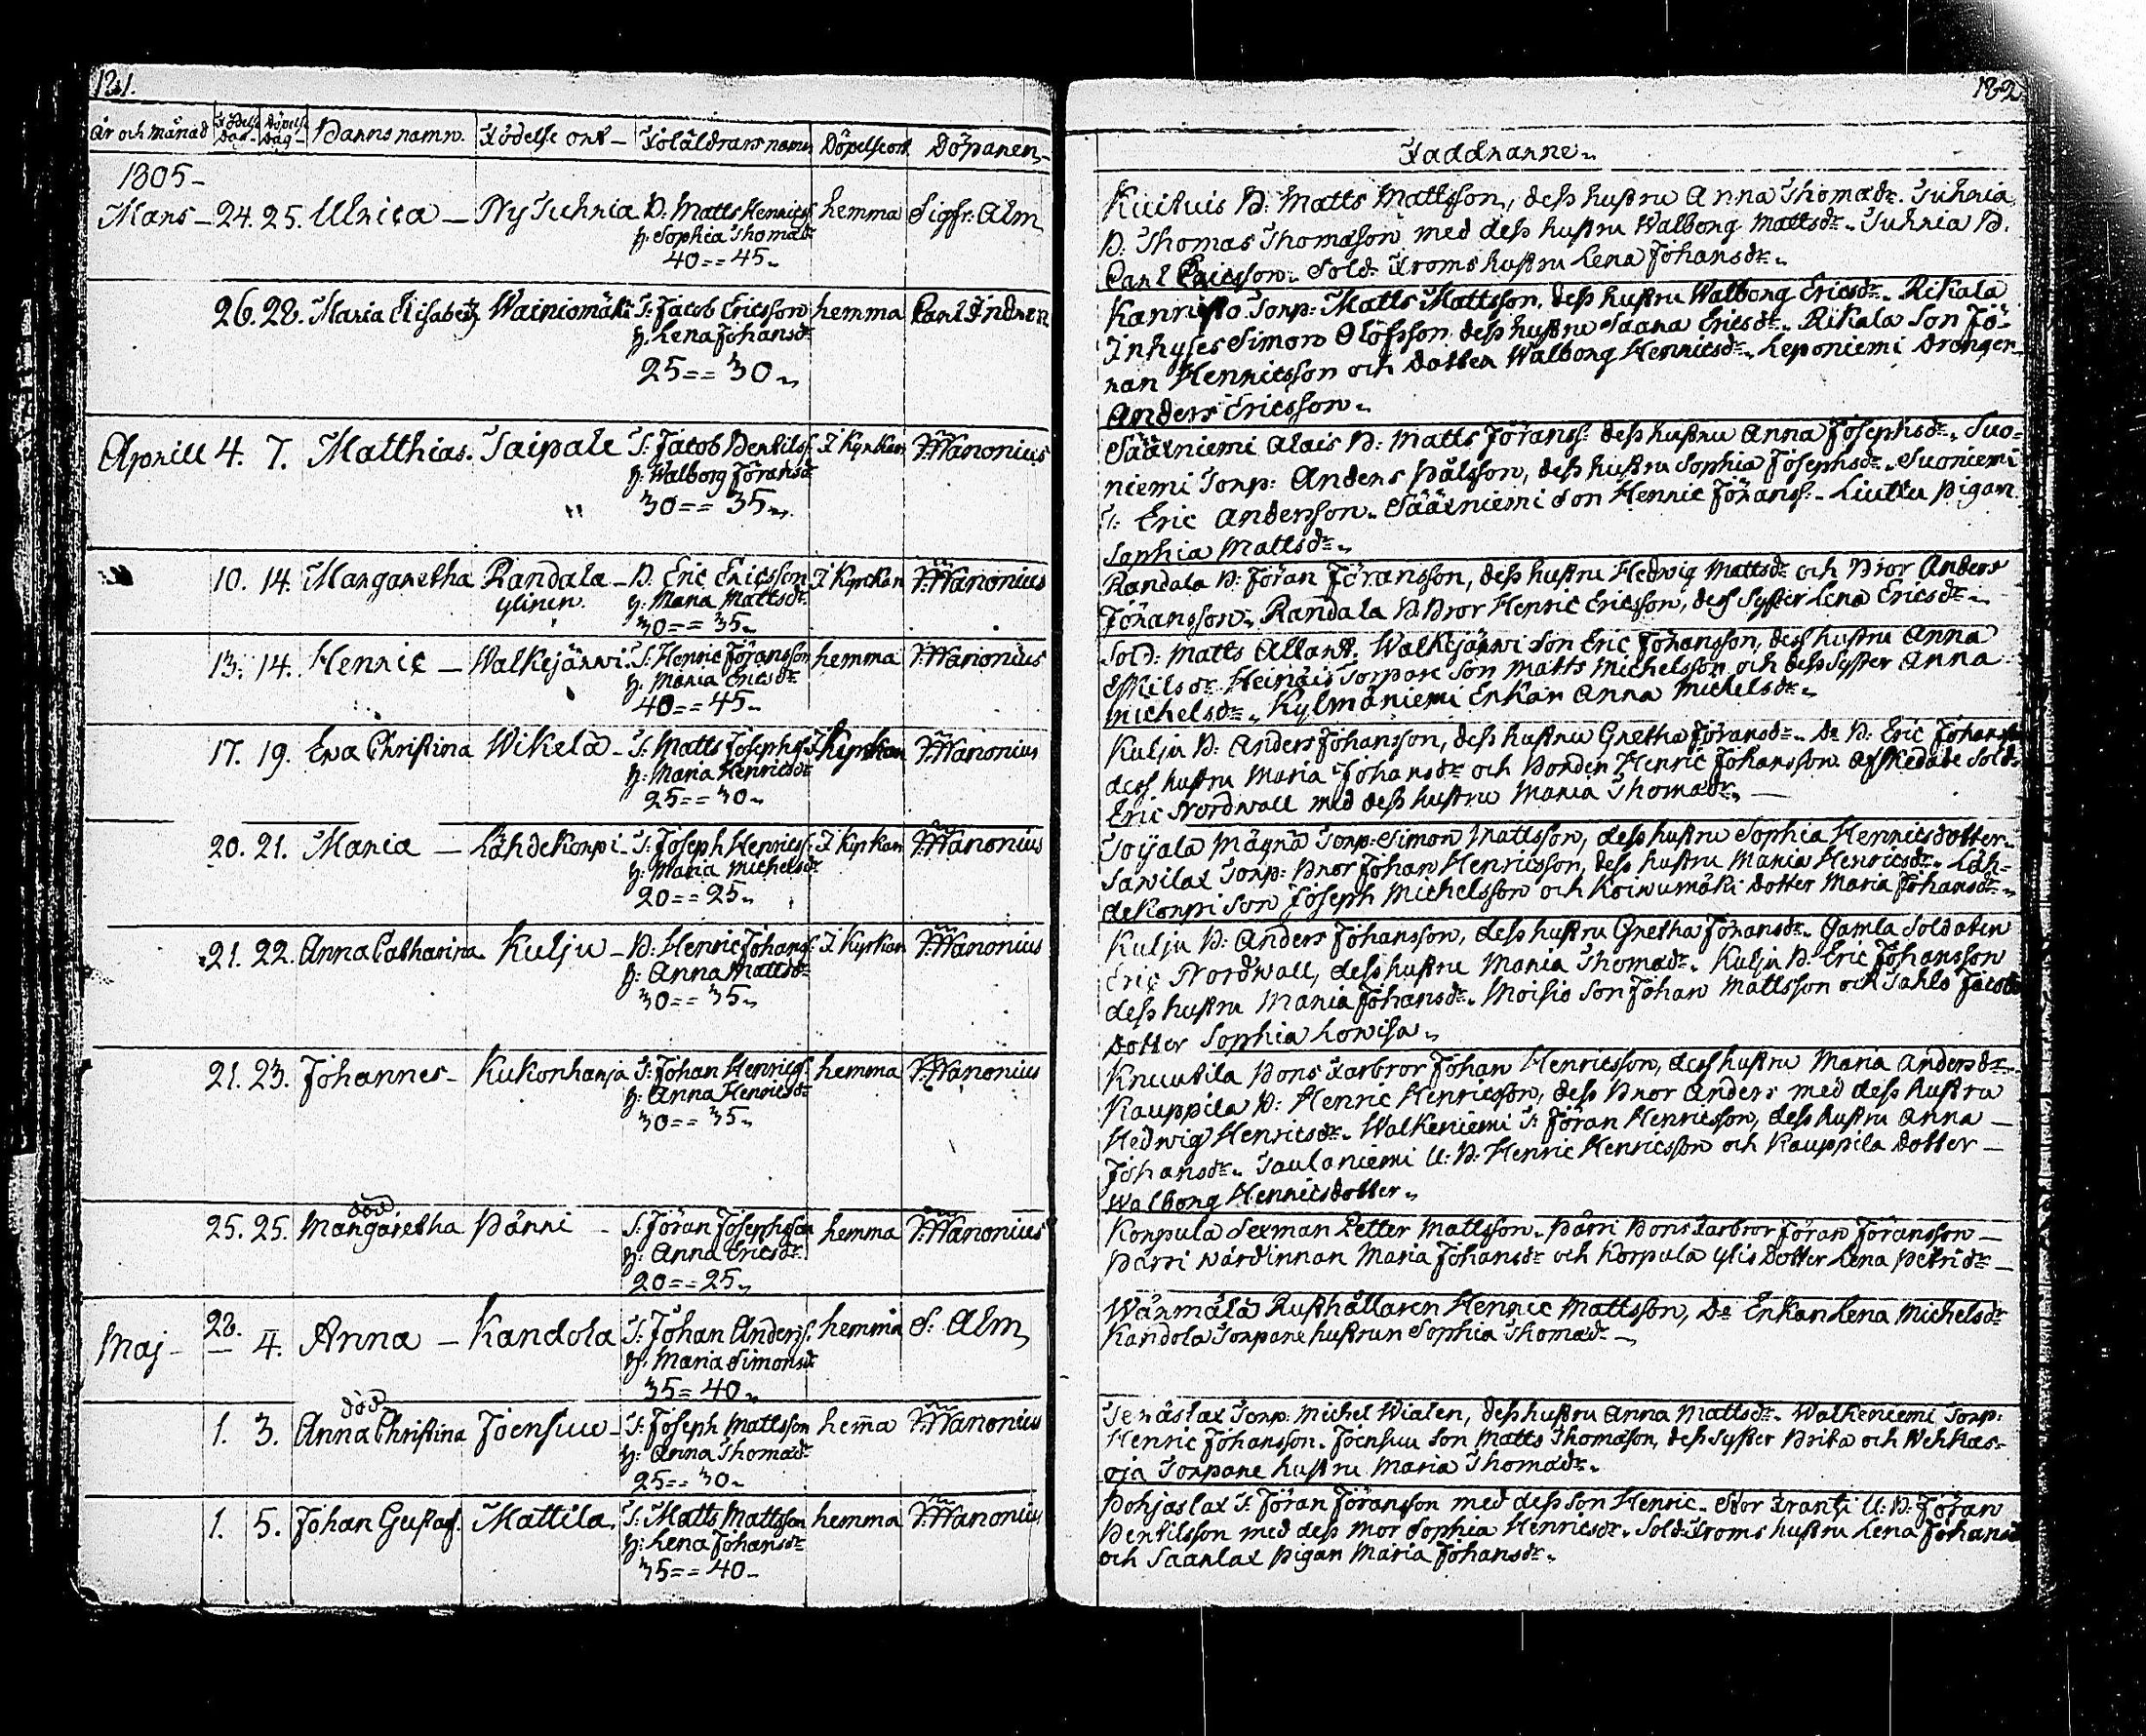 181.
År och månad Födelse Dag Döpelse Dag Barns namn. Födelse ort Föräldrars namn Döpelse ort Döparen
1805
Mars 24. 25. Ulrica Ny Juhnia B: Matts Henricss. hemma Sigfr: Alm
h: Sophia Thomædr
40 == 45
26. 28. Maria Elisabeth Wainiomäki T: Jacob Ericsson hemma Carl Indrén
h: Lena Johansdr
25 == 30
Aprill 4. 7. Matthias. Taipale T: Jacob Bertilss. I Kyrkan J: Wanonius
h: Walborg Jöransdr
30 == 35
10. 14. Margaretha Randala B. Eric Ericsson I Kyrckan J: Wanonius
ylinen. h: Maria Mattsdr
30 == 35
13. 14. Henric Walkejärwi T. Henric Jöransson hemma J: Wanonius
h: Maria Ericsdr
40 == 45
17. 19. Eva Christina Wikelä T: Matts Josephss. I Kyrckan J: Wanonius
h: Maria Henricsdr
25 == 30
20. 21. Maria Lähdekorpi T: Joseph Henricss. I Kyrkan J: Wanonius
h: Maria Michelsdr
20 == 25
21. 22. Anna Catharina Kulju B: Henric Johanss. I Kyrkan J: Wanonius
h: Anna Mattsdr
30 == 35
21. 23. Johannes Kukonharja T: Johan Henricss. hemma J: Wanonius
h: Anna Henricsdr
30 == 35
död
25. 25. Margaretha Pärri T. Jöran Josephsson hemma J: Wanonius
h: Anna Ericsdr
20 == 25
Maj 28. 4. Anna Kandola T: Johan Anderss. hemma S: Alm
h: Maria Simonsdr
35 = 40
död
1. 3. Anna Christina Joensuu T: Joseph Mattsson hema J: Wanonius
h: Anna Thomædr
25 == 30
1. 5. Johan Gustaf. Mattila. T: Matts Mattsson hemma J: Wanonius
h: Lena Johansdr
35 == 40
182
Faddrarne
Kuituis B: Matts Mattsson, dess hustru Anna Thomædr. Juhnia
B. Thomas Thomasson med dess hustru Walborg Mattsdr. Juhnia B.
Carl Ericsson. Sold: Froms hustru Lena Johansdr.
Kanristo Torp: Matts Mattsson, dess hustru Walborg Ericsdr. Rikala
Inhyses Simon Olofsson dess hustru Saara Ericsdr. Rikala Son Jö-
ran Henricsson och Dotter Walborg Henricsdr. Leponiemi Drengen
Anders Ericsson.
Sääxniemi Alais B: Matts Jöranss: dess hustru Anna Josephsdr. Suo-
niemi Torp: Anders Pålsson, dess hustru Sophia Josephsdr. Suoniemi
T: Eric Andersson. Sääxniemi Son Henric Jöranss. Liuttu Pigan
Sophia Mattsdr.
Randala B: Jöran Jöransson, dess hustru Hedwig Mattsdr och Bror Anders
Jöransson. Randala B. Bror Henric Ericsson, dess Syster Lena Ericsdr.
Sold: Matts Allart. Walkejärwi Son Eric Jöhansson, dess hustru Anna
Eskilsdr. Heinäis Torpare Son Matts Michelsson och dess Syster Anna
Michelsdr. Kylmäniemi Enkan Anna Michelsdr.
Kulju B: Anders Johansson, dess hustru Gretha Jöransdr. Do B: Eric Johansson
dess hustru Maria Johansdr och Bonden Henric Johansson. Afskedade Sold:
Eric Nordwall med dess hustru Maria Thomædr.
Toijala Mäyrä Torp: Simon Mattsson, dess hustru Sophia Henricsdotter.
Sawilax Torp: Bror Johan Henricsson, dess hustru Maria Henricsdr. Läh-
dekorpi Son Joseph Michelsson och Koiwumäki Dotter Maria Johansdr.
Kulju B: Anders Johansson, dess hustru Gretha Johansdr. Gamla Soldaten
Eric Nordwall, dess hustru Maria Thomædr. Kulju B: Eric Johansson
dess hustru Maria Johansdr. Moisio Son Johan Mattsson och Sahlo
Dotter Sophia Lowisa.
Knuutila Bons Farbror Johan Henricsson, dess hustru Maria Andersdr
Kauppila B: Henric Henricsson, dess Bror Anders med dess hustru
Hedwig Henricsdr. Walkeniemi T: Jöran Henricsson, dess hustru Anna
Johansdr. Taulaniemi U: B: Henric Henricsson och Kauppila Dotter
Walborg Henricsdotter.
Korpula Sexman Petter Mattsson. Pärri Bons Farbror Jöran Jöransson
Pärri wärdinnan Maria Johansdr och Korpula ylis Dotter Lena Petridr
Wänmälä Rusthållaren Henric Mattsson, Do Enkan Lena Michelsdr
Kandola Torpare hustrun Sophia Thomædr
Jenäslax Torp: Michel Wialen, dess hustru Anna Mattsdr. Walkeniemi Torp:
Henric Johansson. Joensuu Son Matts Thomasson, dess Syster Brita och Wehkas-
oja Torpare hustru Maria Thomædr.
Pohjaslax T: Jöran Jöransson med dess Son Henric. Stor Frantsi U: B: Jöran
Bertilsson med dess Mor Sophia Henricsdr. Sold: Froms hustru Lena Johansd
och Saarlax Pigan Maria Johansdr.